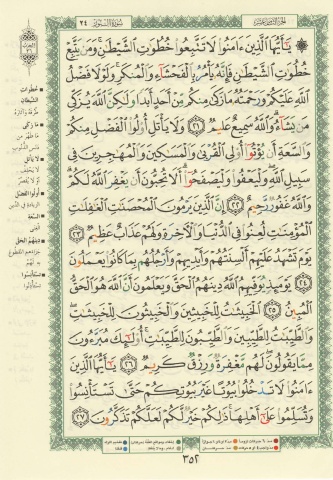 الجزء الثامن عشر
سورة النور
٢٤
يَٰٓأَيُّهَا ٱلَّذِينَ ءَامَنُوا۟ لَا تَتَّبِعُوا۟ خُطُوَٰتِ ٱلشَّيْطَٰنِ ۚ وَمَن يَتَّبِعْ
خُطُوَٰتِ ٱلشَّيْطَٰنِ فَإِنَّهُۥ يَأْمُرُ بِٱلْفَحْشَآءِ وَٱلْمُنكَرِ ۚ وَلَوْلَا فَضْلُ
ٱللَّهِ عَلَيْكُمْ وَرَحْمَتُهُۥ مَا زَكَىٰ مِنكُم مِّنْ أَحَدٍ أَبَدًا وَلَٰكِنَّ ٱللَّهَ يُزَكِّى
مَن يَشَآءُ ۗ وَٱللَّهُ سَمِيعٌ عَلِيمٌ ٢١ وَلَا يَأْتَلِ أُو۟لُوا۟ ٱلْفَضْلِ مِنكُمْ
وَٱلسَّعَةِ أَن يُؤْتُوٓا۟ أُو۟لِى ٱلْقُرْبَىٰ وَٱلْمَسَٰكِينَ وَٱلْمُهَٰجِرِينَ فِى
سَبِيلِ ٱللَّهِ ۖ وَلْيَعْفُوا۟ وَلْيَصْفَحُوٓا۟ ۗ أَلَا تُحِبُّونَ أَن يَغْفِرَ ٱللَّهُ لَكُمْ ۗ
وَٱللَّهُ غَفُورٌ رَّحِيمٌ ٢٢ إِنَّ ٱلَّذِينَ يَرْمُونَ ٱلْمُحْصَنَٰتِ ٱلْغَٰفِلَٰتِ
ٱلْمُؤْمِنَٰتِ لُعِنُوا۟ فِى ٱلدُّنْيَا وَٱلْءَاخِرَةِ وَلَهُمْ عَذَابٌ عَظِيمٌ ٢٣
يَوْمَ تَشْهَدُ عَلَيْهِمْ أَلْسِنَتُهُمْ وَأَيْدِيهِمْ وَأَرْجُلُهُم بِمَا كَانُوا۟ يَعْمَلُونَ
٢٤ يَوْمَئِذٍ يُوَفِّيهِمُ ٱللَّهُ دِينَهُمُ ٱلْحَقَّ وَيَعْلَمُونَ أَنَّ ٱللَّهَ هُوَ ٱلْحَقُّ
ٱلْمُبِينُ ٢٥ ٱلْخَبِيثَٰتُ لِلْخَبِيثِينَ وَٱلْخَبِيثُونَ لِلْخَبِيثَٰتِ ۖ
وَٱلطَّيِّبَٰتُ لِلطَّيِّبِينَ وَٱلطَّيِّبُونَ لِلطَّيِّبَٰتِ ۚ أُو۟لَٰٓئِكَ مُبَرَّءُونَ
مِمَّا يَقُولُونَ ۖ لَهُم مَّغْفِرَةٌ وَرِزْقٌ كَرِيمٌ ٢٦ يَٰٓأَيُّهَا ٱلَّذِينَ
ءَامَنُوا۟ لَا تَدْخُلُوا۟ بُيُوتًا غَيْرَ بُيُوتِكُمْ حَتَّىٰ تَسْتَأْنِسُوا۟
وَتُسَلِّمُوا۟ عَلَىٰٓ أَهْلِهَا ۚ ذَٰلِكُمْ خَيْرٌ لَّكُمْ لَعَلَّكُمْ تَذَكَّرُونَ ٢٧
٣٥٢
الحزب
٣٦
خطوات
الشيطان
ما زكى
لا يأتل
أولوا الفضل
السعة
دينهم الحق
تستأنسوا